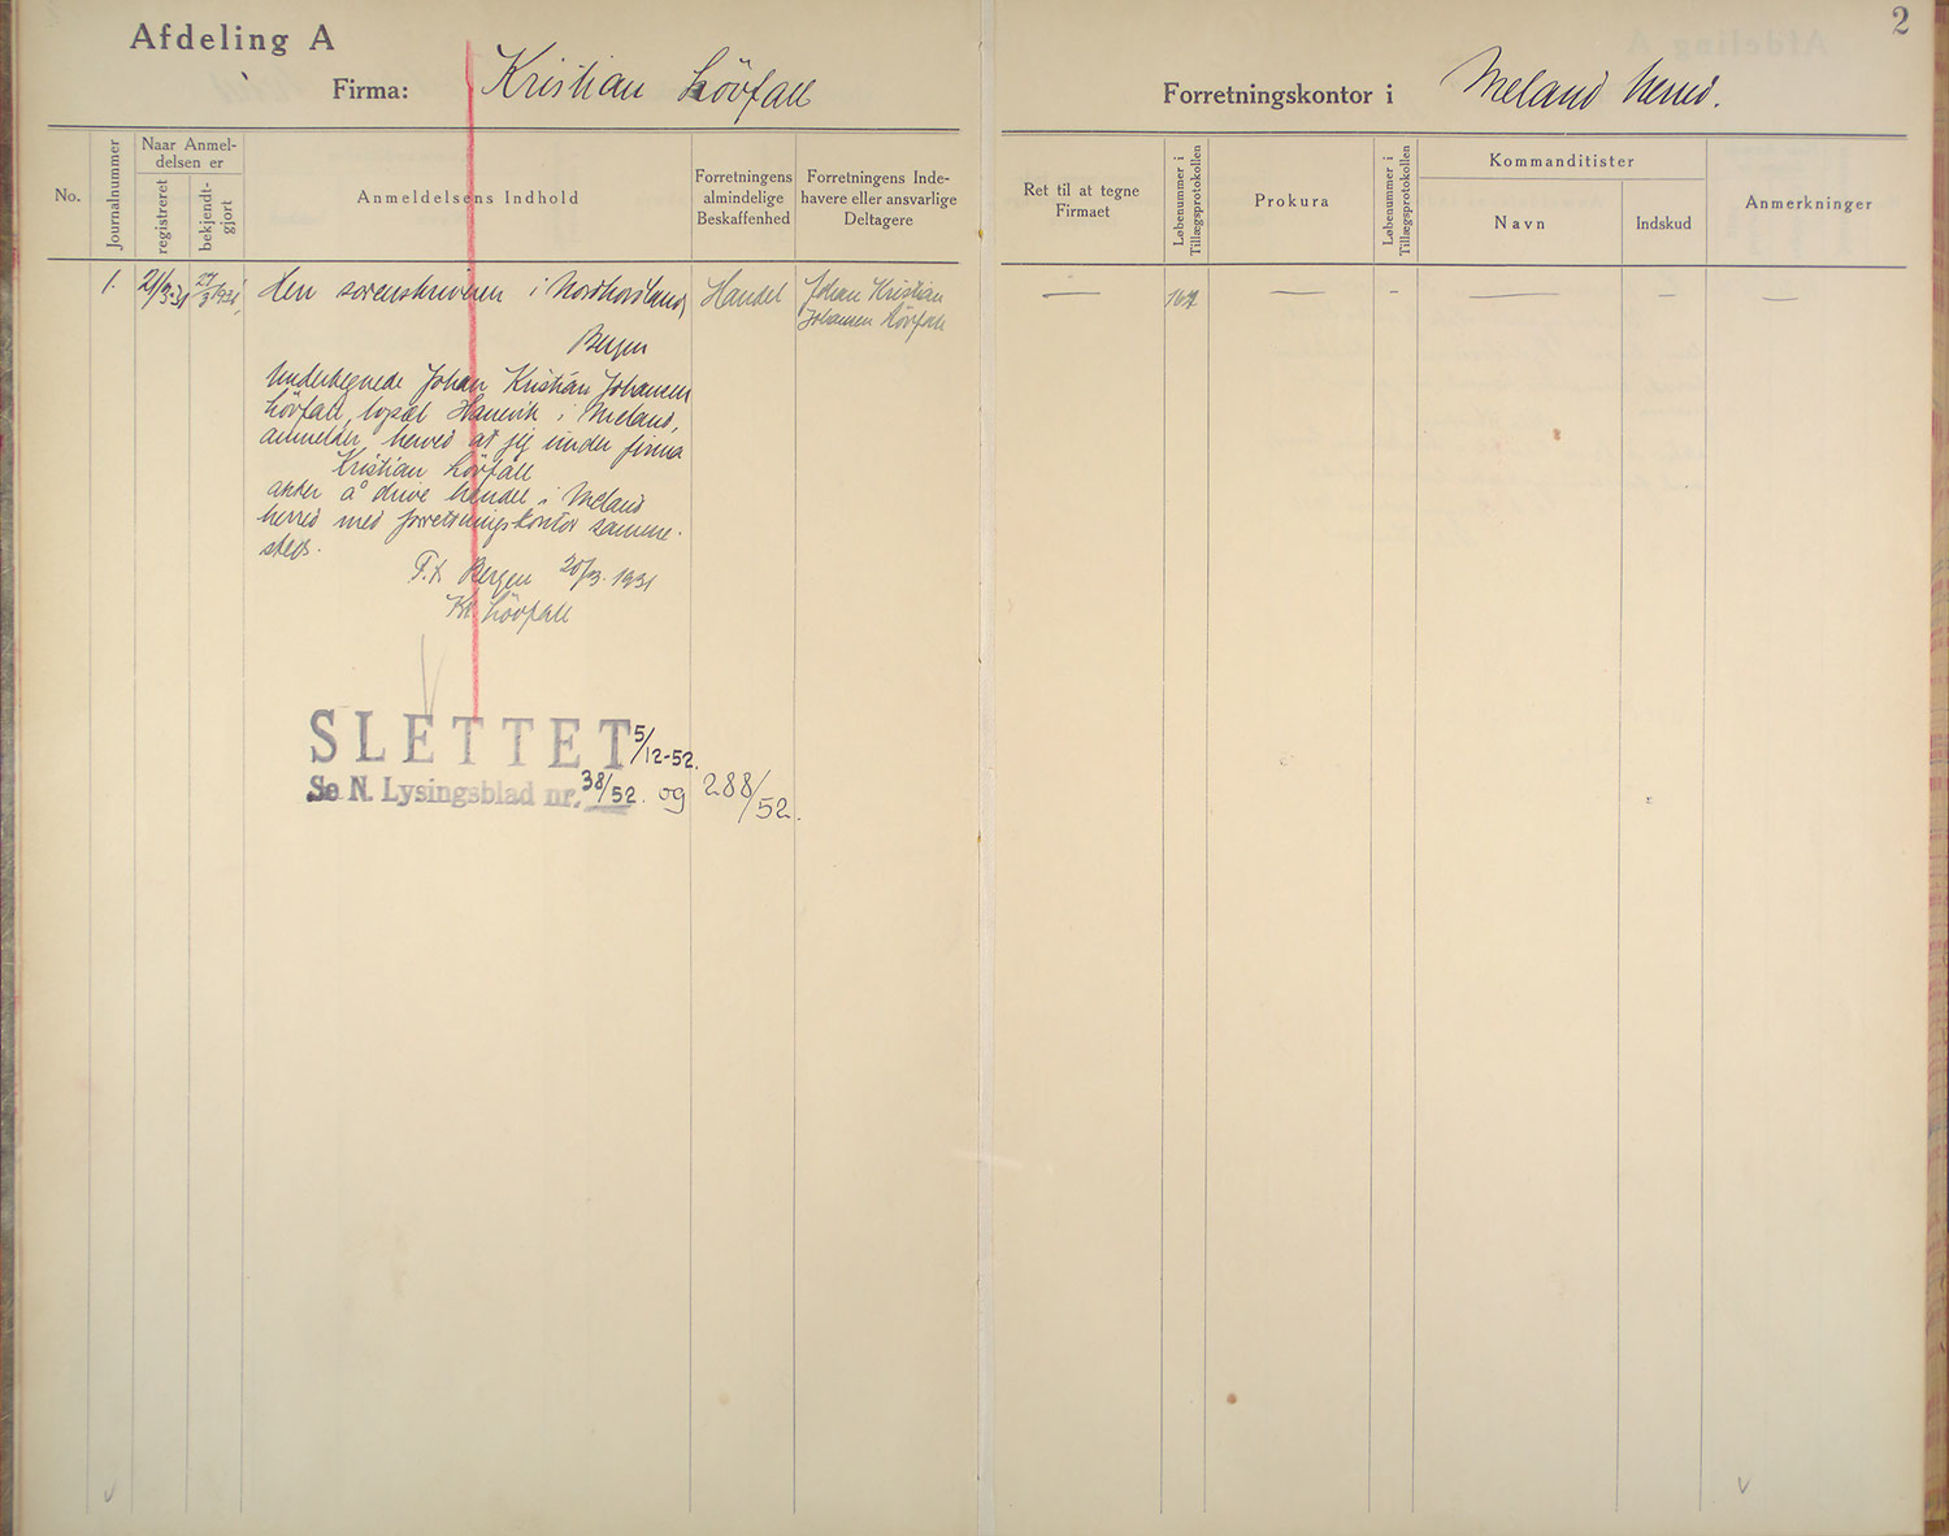 Afdeling A
Firma: Kristian Lövfall
Forretningskontor i Meland herred.
2
No.
Journalnummer
Naar Anmel-
delsen er
registreret
bekjendt-
gjort
Anmeldelsens Indhold
Forretningens
almindelige
Beskaffenhed
Forretningens Inde-
havere eller ansvarlige
Deltagere
Ret til at tegne
Firmaet
Løbenummer i
Tillægsprotokollen
Prokura
Løbenummer i
Tillægsprotokollen
Kommanditister
Navn
Indskud
Anmerkninger
1.
21/3-31
27/3 1931
Herr sorenskriveren i Nordhordland,
Bergen
Undertegnede Johan Kristian Johansen
Lövfall, bopæl i Meland,
anmelder herved at jeg under firma
Kristian Lövfall
akter å drive handel i Meland
herred med forretningskontor samme-
steds.
P.t. Bergen 20/3. 1931
Kr. Lövfall
Handel
Johan Kristian
Johansen Lövfall
— — - — — —
SLETTET 5/12-52.
Se N. Lysingsblad nr. 38/52. og 288/52.